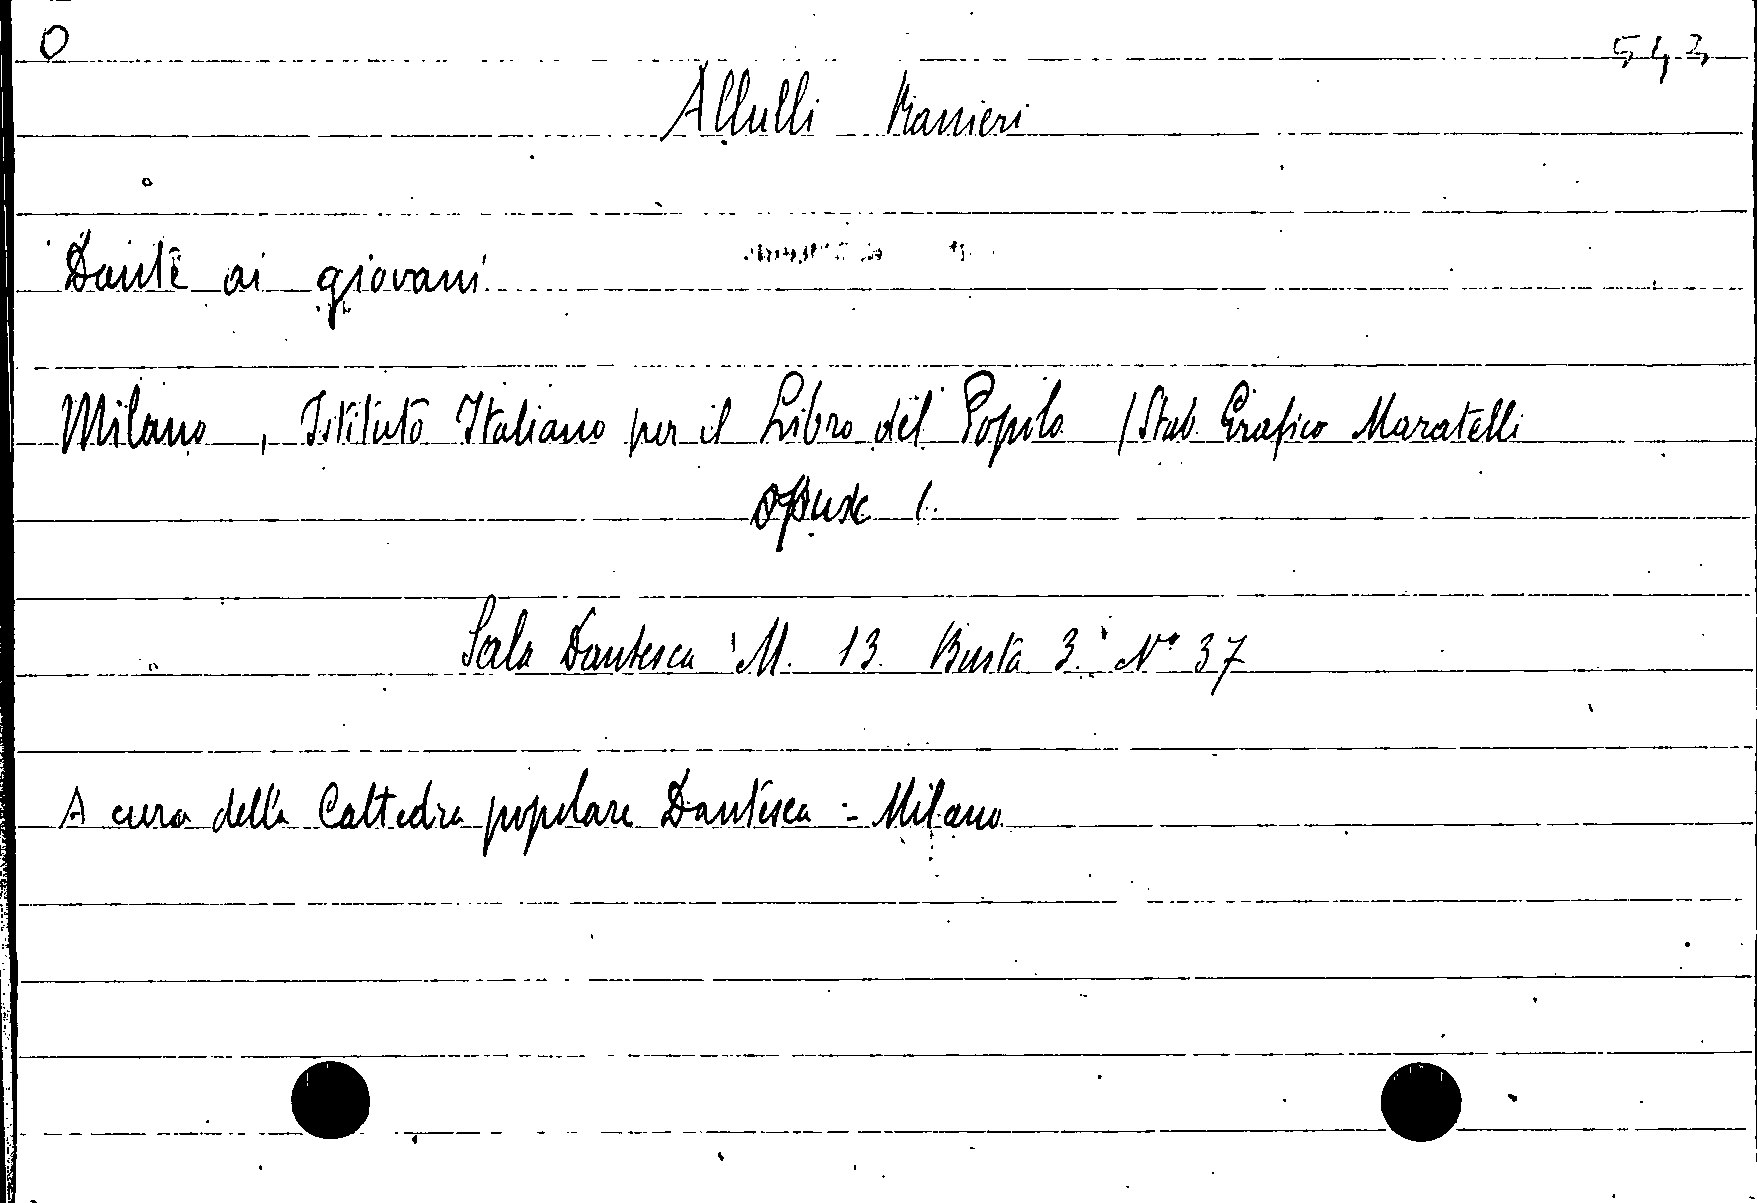 O 543
Allulli Ranieri
Dante ai giovani
Milano, Istituto Italiano per il Libro del Popolo / Stab. Grafico Maratelli
Opusc 1.
Sala Dantesca M. 13 Busta 3. N° 37
A cura della Cattedra popolare Dantesca - Milano